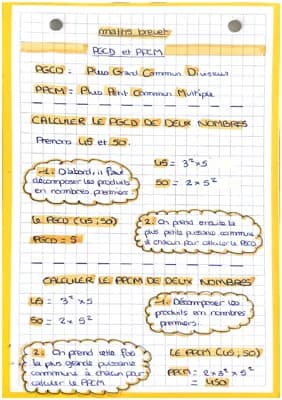 maths brevet
PGCD et PPCM
PGCD : Plus Grand Commun Diviseur
PPCM = Plus Petit Commun Multiple
CALCULER LE PGCD DE DEUX NOMBRES
Prenons 45 et 50.
1. D'abord, il faut
décomposer les produits
en nombres premiers.
45 = 3² × 5
50 = 2 × 5²
le PGCD (45 ; 50)
PGCD = 5
2. On prend ensuite la
plus petite puissance commune
à chacun pour calculer le PGCD
CALCULER LE PPCM DE DEUX NOMBRES
45 = 3² × 5
50 = 2 × 5²
1. Décomposer les
produits en nombres
premiers.
2. On prend cette fois
la plus grande puissance
commune à chacun pour
calculer le PPCM
LE PPCM (45 ; 50)
PPCM = 2 × 3² × 5²
= 450